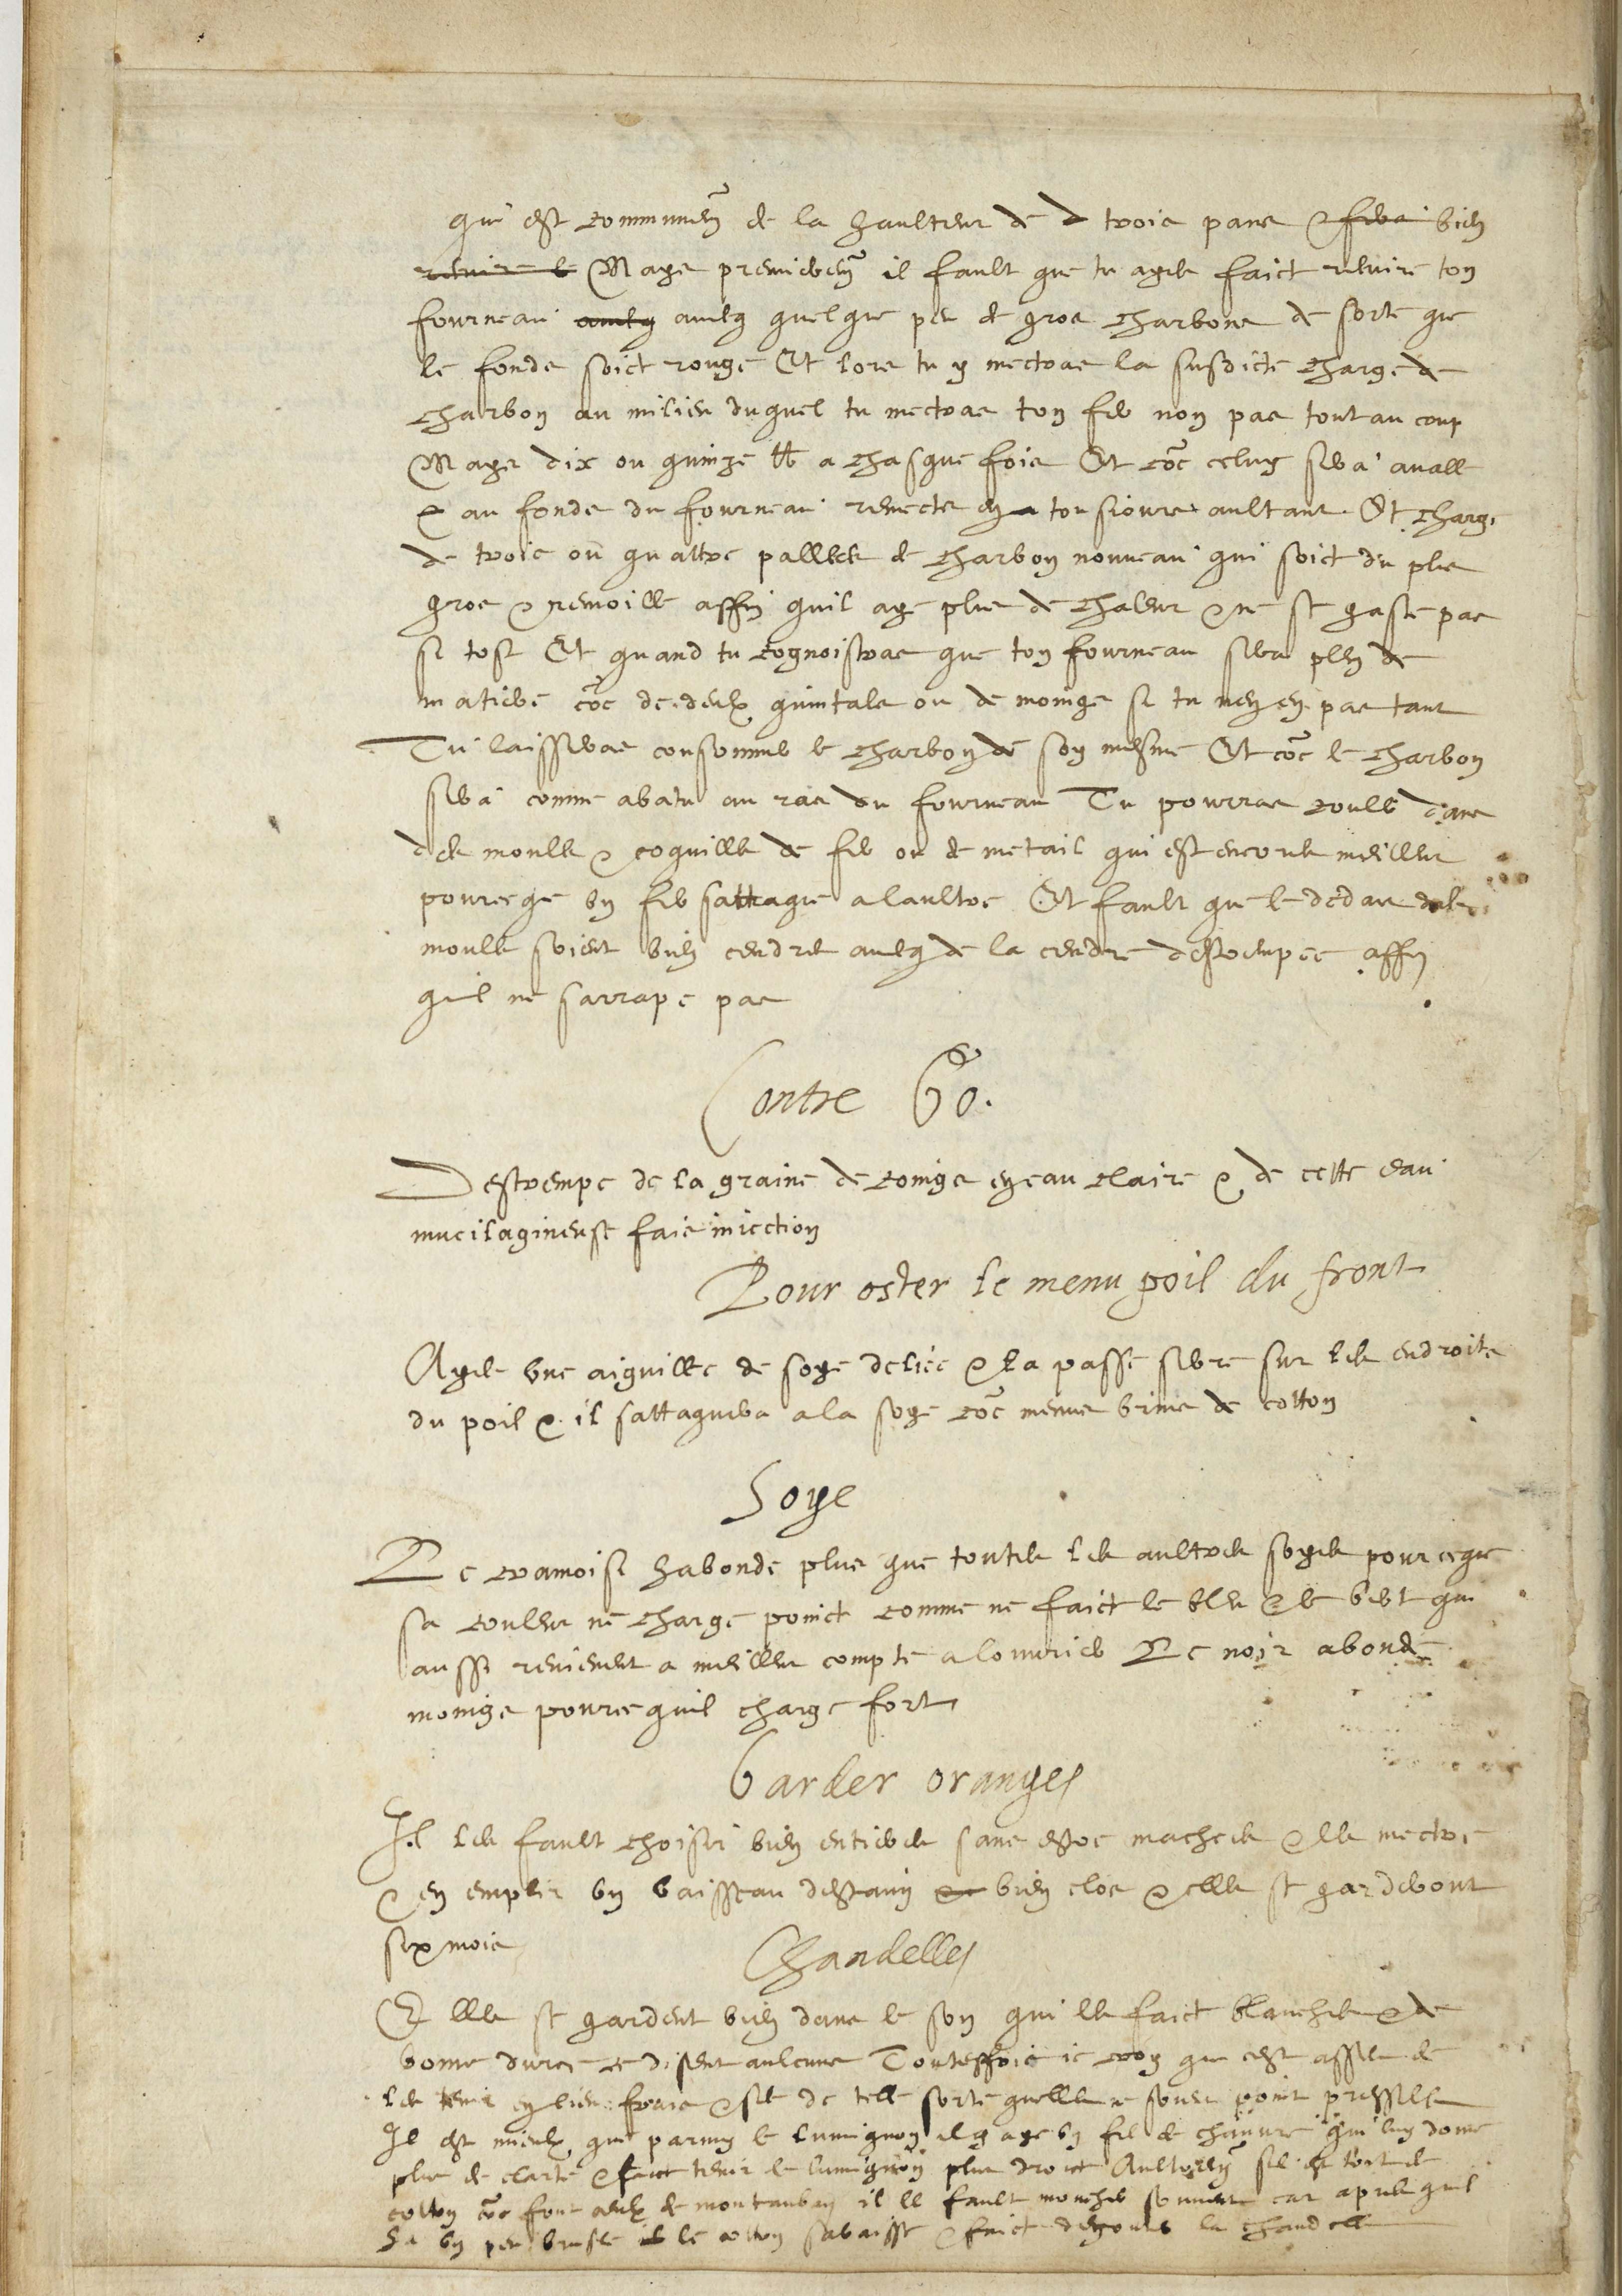 qui est communem̃ de la haulteur de d trois pans & fera bien
reuire le Mays premierem̃ il fault que tu ayes faict reluire ton
fourneau aveq aveq quelque peu de gros charbons de sorte que
le fonds soict rouge Et lors tu y mectras la susdicte charge de
charbon au milieu duquel tu mectras ton fer non pas tout au coup
Mays dix ou quinze lb a chasque fois Et coe celuy sera avall
& au fonds du fourneau remects en a tousjours aultant Et charge
de trois ou quattre pallees de charbon nouveau qui soict du plus
gros & remoille affin quil aye plus de chaleur & ne se gaste pas
si tost Et quand tu cognoistras que ton fourneau sera plein de
matiere coe de deulx quintals ou de moings si tu nen as pas tant
Tu laisseras consommer le charbon de soy mesme Et coe le charbon
sera comme abatu au ras du fourneau Tu pourras couler dans
des moules & coquilles de fer ou de metail qui est encores meilleur
pource que un fer sattaque a laultre Et fault que le dedans des
moules soient bien cendres aveq de la cendre destrempee affin
quil ne sarrape pas
Contre Go.
Destrempe de la graine de coings en eau claire & de cette eau
mucilagineuse fais injection
Pour oster le menu poil du front
Ayes une aiguillee de soye deliee & la passe serre sur les endroits
du poil & il sattaquera a la soye coe menue brine de cotton
Soye
Le cramoisi habonde plus que toutes les aultres soyes pource que
sa couleur ne charge poinct comme ne faict le bleu & le vert qui
aussi revienent a meilleur compte a louvrier Le noir abonde
moings pource quil charge fort
Garder oranges
Il les fault choisir bien entieres sans estre machees & les mectre
& en emplir un vaisseau destain & bien clos & elles se garderont
six mois
Chandelles
Elles se gardent bien dans le son qui les faict blanches & de
bonne duree ce disent aulcuns Touteffois je croy que cest asses de
les tenir en lieu frais & sec de telle sorte quelles ne soient point pressees
Il est mieulx que parmy le lumignon il y aye un fil de chanvre qui luy donne
plus de clarte & faict tenir le lumignon plus droict Aultrem̃ sil est tout de
cotton coe font ceulx de montauban il le fault moucher souvent car apres quil
ha un peu brusle il le cotton sabaisse & faict descouler la chandelle